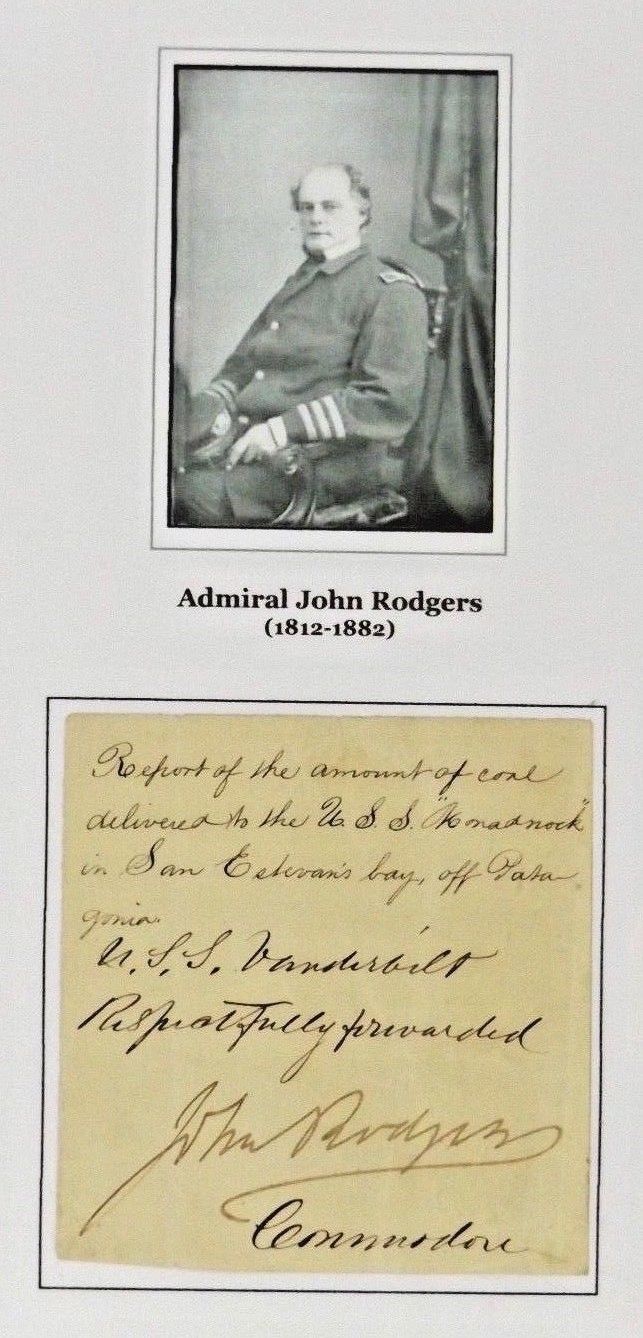 Admiral John Rodgers
(1812-1882)
Report of the amount of coal
delivered to the U. S. S. "Monadnock"
in San Estevan's bay, off Pata
gonia.
U. S. S. Vanderbilt
Respectfully forwarded
John Rodgers
Commodore